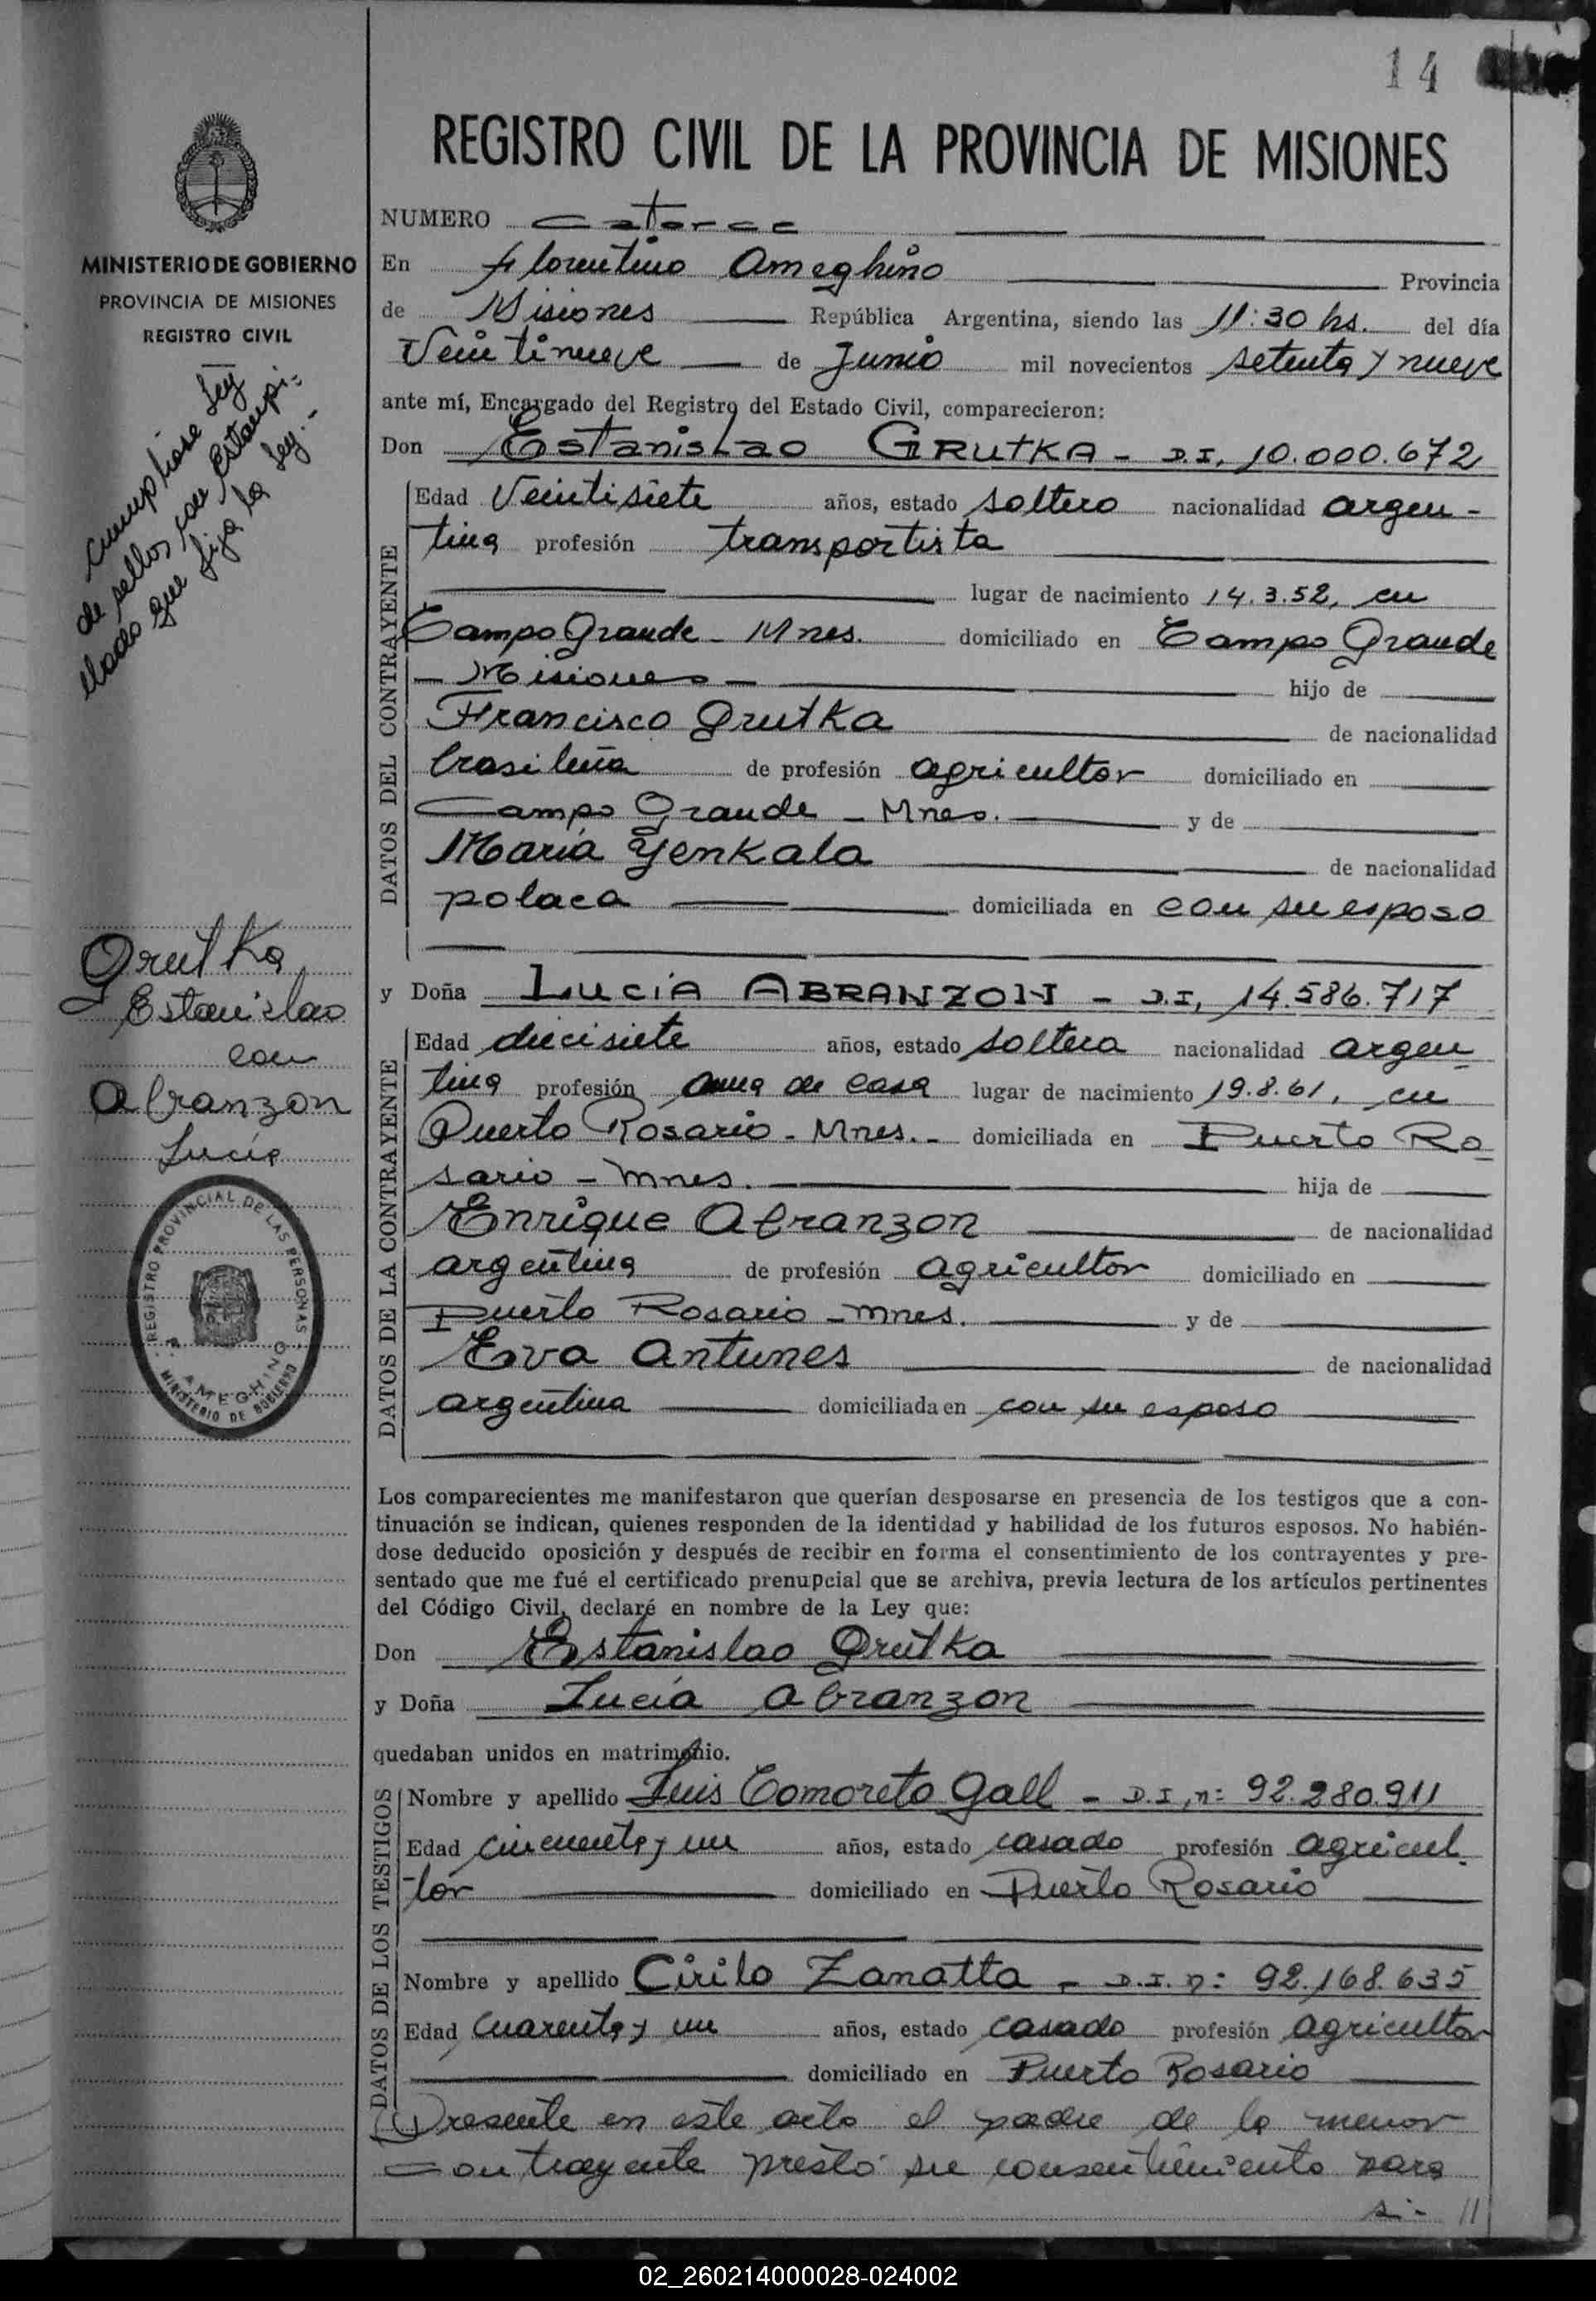 14
REGISTRO CIVIL DE LA PROVINCIA DE MISIONES
MINISTERIO DE GOBIERNO
PROVINCIA DE MISIONES
REGISTRO CIVIL
cumpliose ley
de sellos con estampi-
llado que fija la ley.-
Grutka
Estanislao
con
Abranzon
Lucía
REGISTRO PROVINCIAL DE LAS PERSONAS
F. AMEGHINO
MINISTERIO DE GOBIERNO
NUMERO catorce
En Florentino Ameghino Provincia
de Misiones República Argentina, siendo las 11:30 hs. del día
Veintinueve de Junio mil novecientos setenta y nueve
ante mí, Encargado del Registro del Estado Civil, comparecieron:
Don Estanislao GRUTKA - D.I. 10.000.672
DATOS DEL CONTRAYENTE
Edad Veintisiete años, estado soltero nacionalidad argen-
tina profesión transportista
lugar de nacimiento 14.3.52, en
Campo Grande - Mnes. domiciliado en Campo Grande
- Misiones - hijo de
Francisco Grutka de nacionalidad
brasileña de profesión agricultor domiciliado en
Campo Grande - Mnes. y de
María Yenkala de nacionalidad
polaca domiciliada en con su esposo
y Doña LUCIA ABRANZON - D.I. 14.586.717
DATOS DE LA CONTRAYENTE
Edad diecisiete años, estado soltera nacionalidad argen
tina profesión ama de casa lugar de nacimiento 19.8.61, en
Puerto Rosario - Mnes. - domiciliada en Puerto Ro
sario - Mnes. hija de
Enrique Abranzon de nacionalidad
argentina de profesión agricultor domiciliado en
Puerto Rosario - Mnes. y de
Eva Antunes de nacionalidad
argentina domiciliada en con su esposo
Los comparecientes me manifestaron que querían desposarse en presencia de los testigos que a con-
tinuación se indican, quienes responden de la identidad y habilidad de los futuros esposos. No habién-
dose deducido oposición y después de recibir en forma el consentimiento de los contrayentes y pre-
sentado que me fué el certificado prenupcial que se archiva, previa lectura de los artículos pertinentes
del Código Civil, declaré en nombre de la Ley que:
Don Estanislao Grutka
y Doña Lucía Abranzon
quedaban unidos en matrimonio.
DATOS DE LOS TESTIGOS
Nombre y apellido Luis Comoreto Gall - D.I. n: 92.280.911
Edad cincuenta y un años, estado casado profesión agricul
tor domiciliado en Puerto Rosario
Nombre y apellido Cirilo Zanatta - D.I. n: 92.168.635
Edad cuarenta y un años, estado casado profesión agricultor
domiciliado en Puerto Rosario
Presente en este acto el padre de la menor
contrayente prestó su consentimiento para
s.- //
02_260214000028-024002